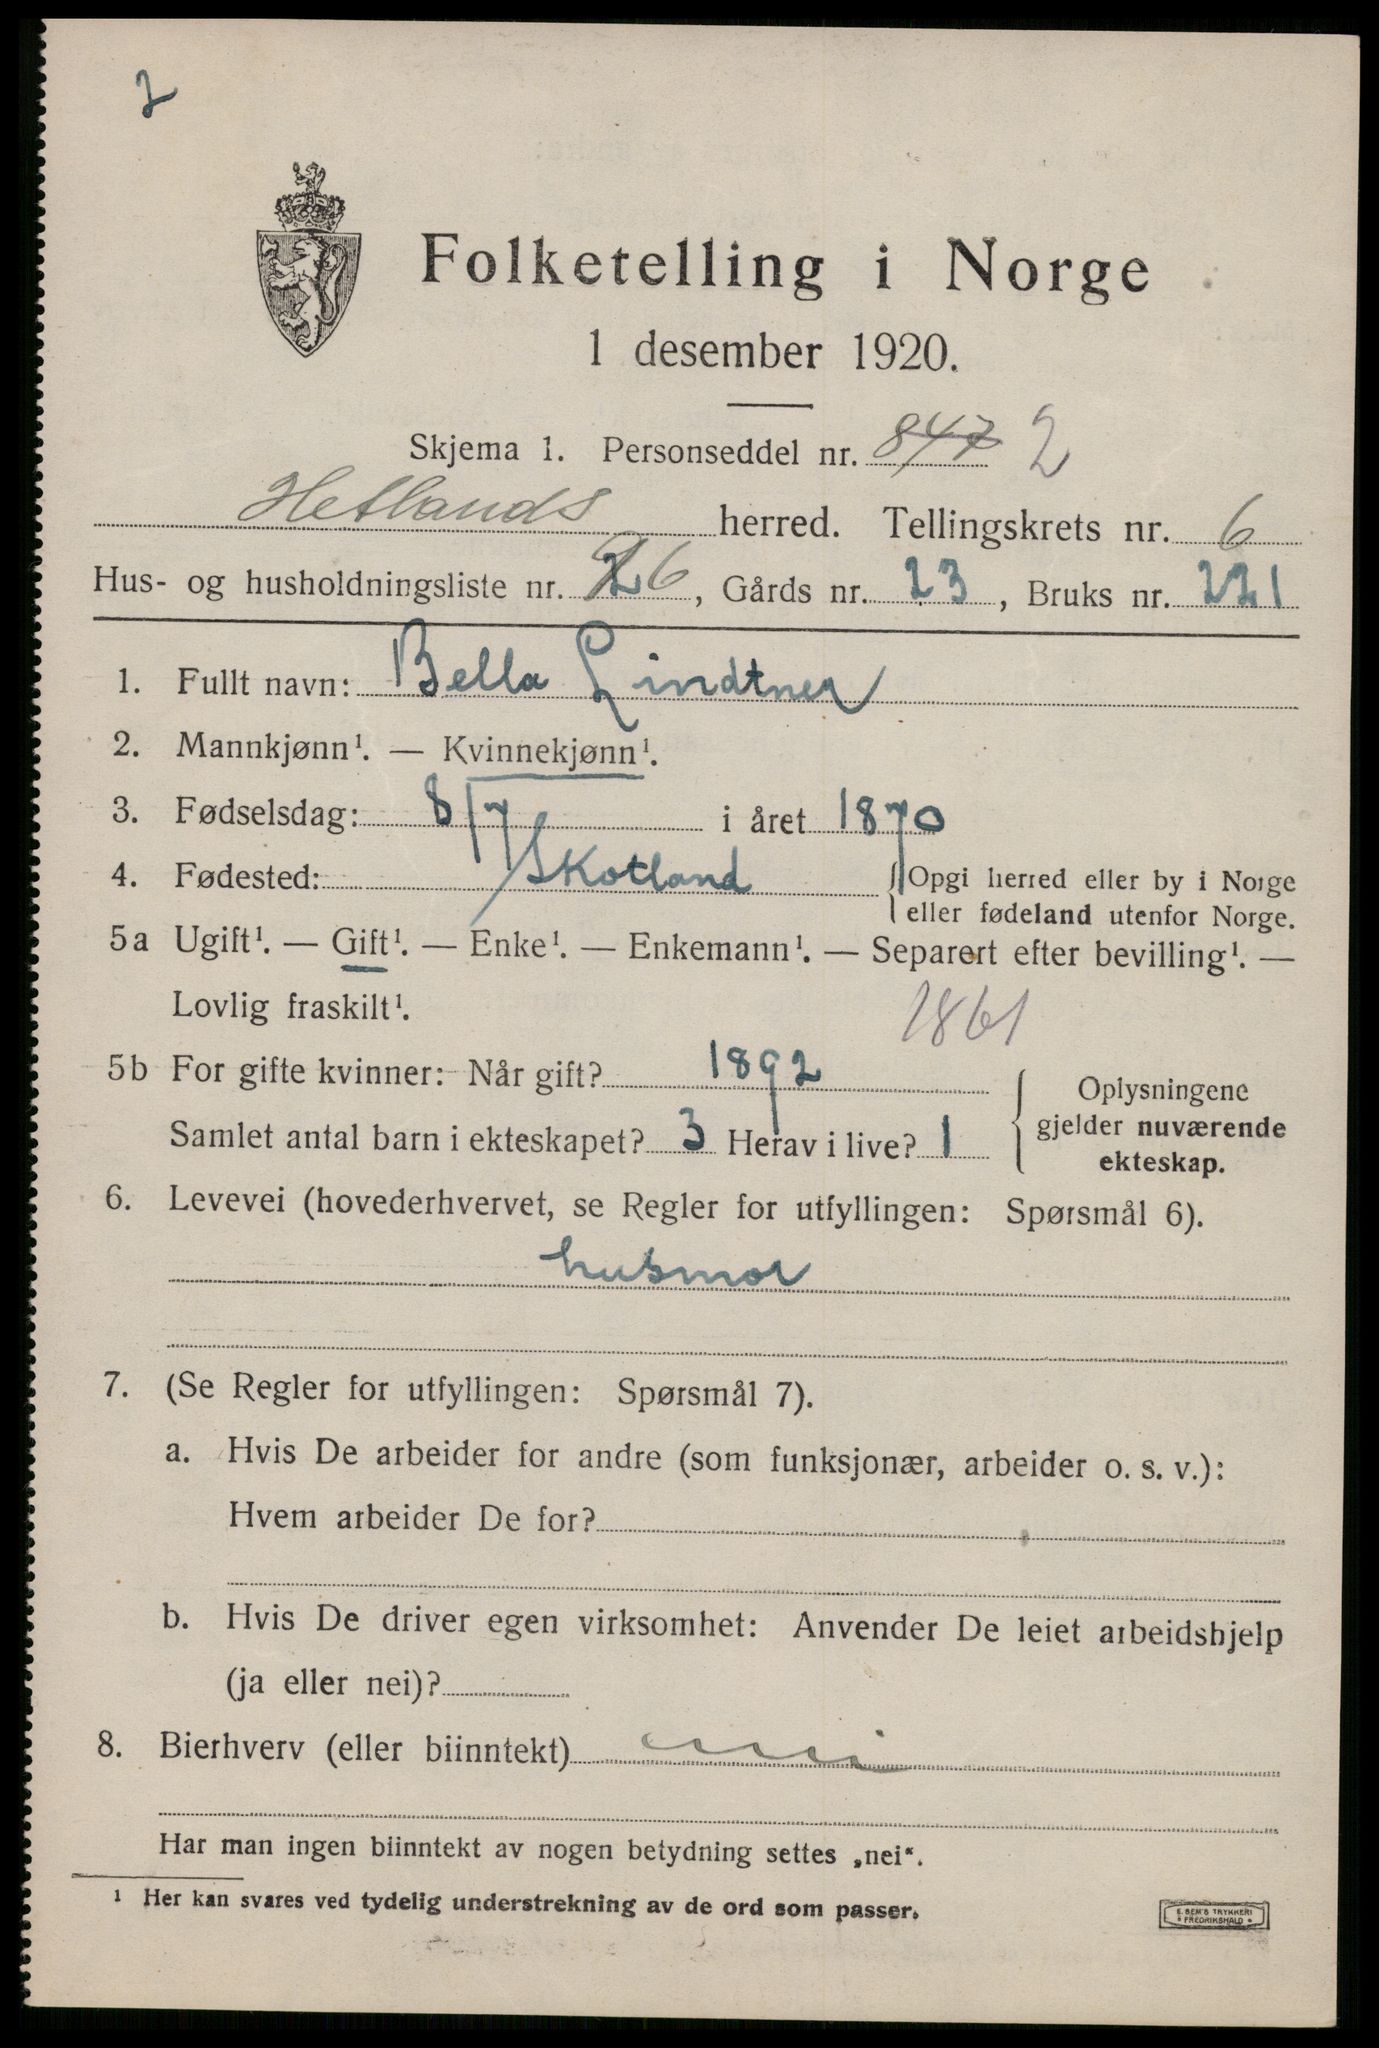 2
Folketelling i Norge
1 desember 1920.
Skjema 1. Personseddel nr. 847 2
Hetlands herred. Tellingskrets nr. 6
Hus- og husholdningsliste nr. 26, Gårds nr. 23, Bruks nr. 221
1. Fullt navn: Bella Lindtner
2. Mannkjønn¹. — Kvinnekjønn¹.
3. Fødselsdag: 8/7 i året 1870
4. Fødested: Skotland {Opgi herred eller by i Norge
eller fødeland utenfor Norge.
5a Ugift¹. — Gift¹. — Enke¹. — Enkemann¹. — Separert efter bevilling¹. —
Lovlig fraskilt¹.
1861
5b For gifte kvinner: Når gift? 1892
Samlet antal barn i ekteskapet? 3 Herav i live? 1
Oplysningene
gjelder nuværende
ekteskap.
6. Levevei (hovederhvervet, se Regler for utfyllingen: Spørsmål 6).
husmor
7. (Se Regler for utfyllingen: Spørsmål 7).
a. Hvis De arbeider for andre (som funksjonær, arbeider o. s. v.):
Hvem arbeider De for?
b. Hvis De driver egen virksomhet: Anvender De leiet arbeidshjelp
(ja eller nei)?
8. Bierhverv (eller biinntekt) nei
Har man ingen biinntekt av nogen betydning settes „nei“.
¹ Her kan svares ved tydelig understrekning av de ord som passer.
E. SEM'S TRYKKERI
FREDRIKSHALD